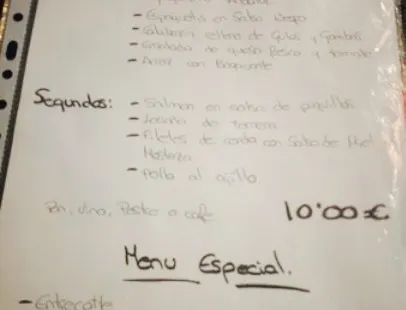 - Espaguetis en Salsa
- rellena de Gulas y Gambas
- de queso fresco y tomate
- Arroz con Bogavante
Segundos: - Salmon en salsa de piquillos
- de Ternera
- Filetes de cerdo con Salsa de Miel
Mostaza
- Pollo al ajillo
Pan, vino, Postre o cafe 10'00€
Menu Especial.
-